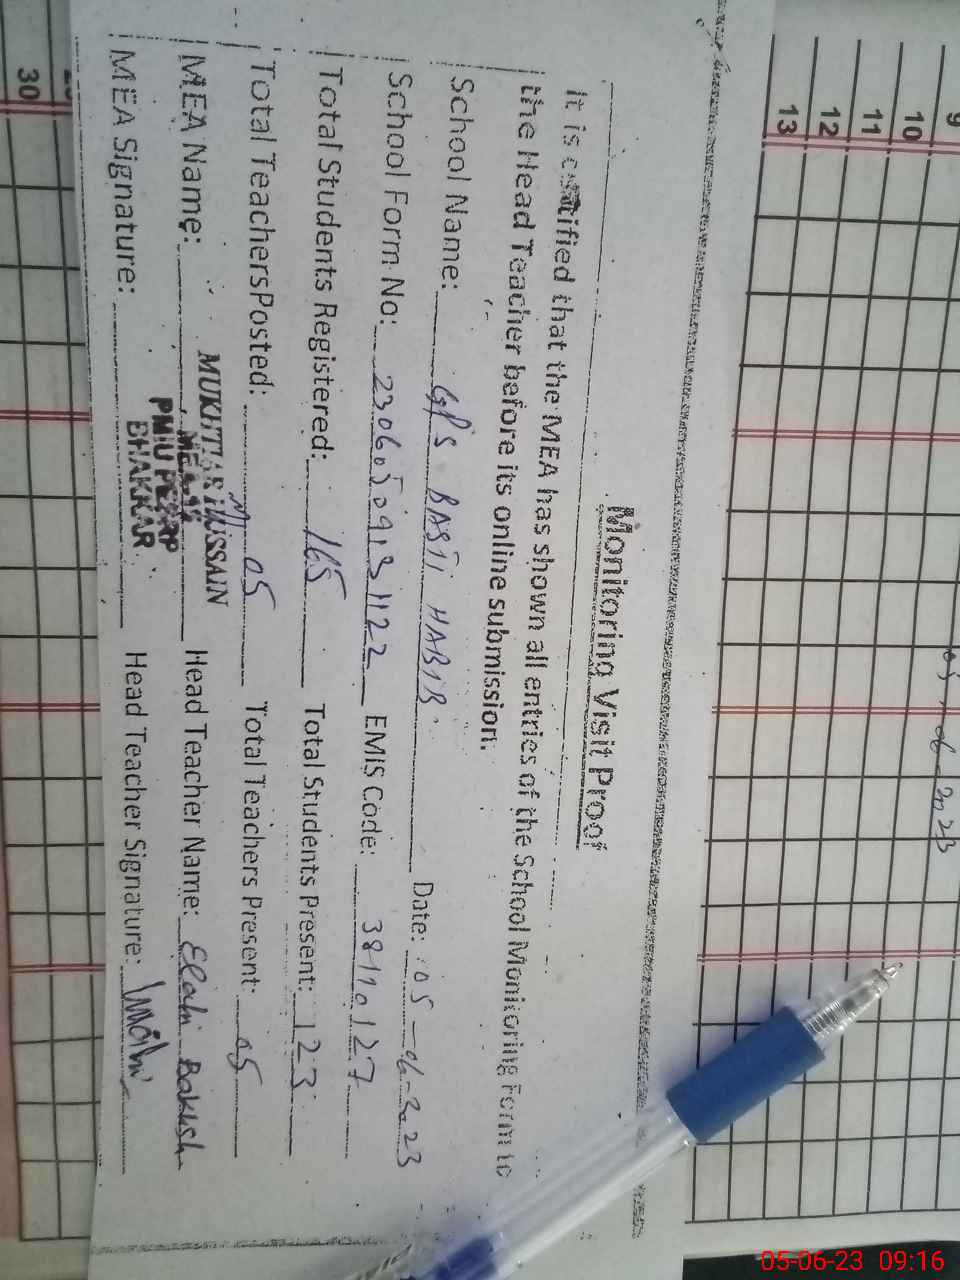 Monitoring Visit Proof
It is certified that the MEA has shown all entries of the School Monitoring Form to
the Head Teacher before its online submission.
School Name: GPS BASTI HABIB Date: 05-06-2023
School Form No: 23060509131122 EMIS Code: 38110127
Total Students Registered: 165 Total Students Present: 123
Total TeachersPosted: 05 Total Teachers Present: 05
MEA Name: MUKHTAR HUSSAIN Head Teacher Name: Elahi Bakhsh
MEA Signature: PMIU PESRP Head Teacher Signature:
BHAKKAR
9
10
11
12
13
30
05-06-2023
05-06-23 09:16